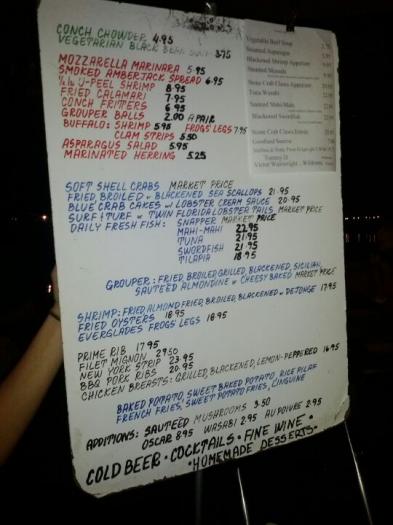 CONCH CHOWDER 4.95
VEGETARIAN BLACK BEAN SOUP 3.75
MOZZARELLA MARINARA 5.95
SMOKED AMBERJACK SPREAD 6.95
U-PEEL SHRIMP 8.95
FRIED CALAMARI 7.95
CONCH FRITTERS 6.95
GROUPER BALLS 2.00 A PAIR
BUFFALO: SHRIMP 5.95 FROGS LEGS 7.95
CLAM STRIPS 5.50
ASPARAGUS SALAD 5.95
MARINATED HERRING 5.25
Vegetable Beef Soup
Steamed Asparagus
Blackened Shrimp Appetizer
Steamed Mussels
Stone Crab Claws Appetizer
Tuna Wasabi
Sauteed Mahi-Mahi
Blackened Swordfish
Stone Crab Claws Entree
SOFT SHELL CRABS MARKET PRICE
FRIED, BROILED or BLACKENED SEA SCALLOPS 21.95
BLUE CRAB CAKES w/ LOBSTER CREAM SAUCE 20.95
SURF & TURF w/ TWIN FLORIDA LOBSTER TAILS MARKET PRICE
DAILY FRESH FISH: SNAPPER MARKET PRICE
MAHI-MAHI 22.95
TUNA 21.95
SWORDFISH 21.95
TILAPIA 18.95
GROUPER: FRIED, BROILED, GRILLED, BLACKENED, SICILIAN,
SAUTEED ALMONDINE or CHEESY BAKED MARKET PRICE
SHRIMP: FRIED, ALMOND FRIED, BROILED, BLACKENED or DEJONGE 17.95
FRIED OYSTERS 18.95
EVERGLADES FROGS LEGS 18.95
PRIME RIB 17.95
FILET MIGNON 27.50
NEW YORK STRIP 23.95
BBQ PORK RIBS 20.95
CHICKEN BREASTS: GRILLED, BLACKENED, LEMON-PEPPERED 16.95
BAKED POTATO, SWEET BAKED POTATO, RICE PILAF
FRENCH FRIES, SWEET POTATO FRIES, LINGUINE
ADDITIONS: SAUTEED MUSHROOMS 3.50
OSCAR 8.95 WASABI 2.95 AU POIVRE 2.95
COLD BEER • COCKTAILS • FINE WINE •
• HOMEMADE DESSERTS •